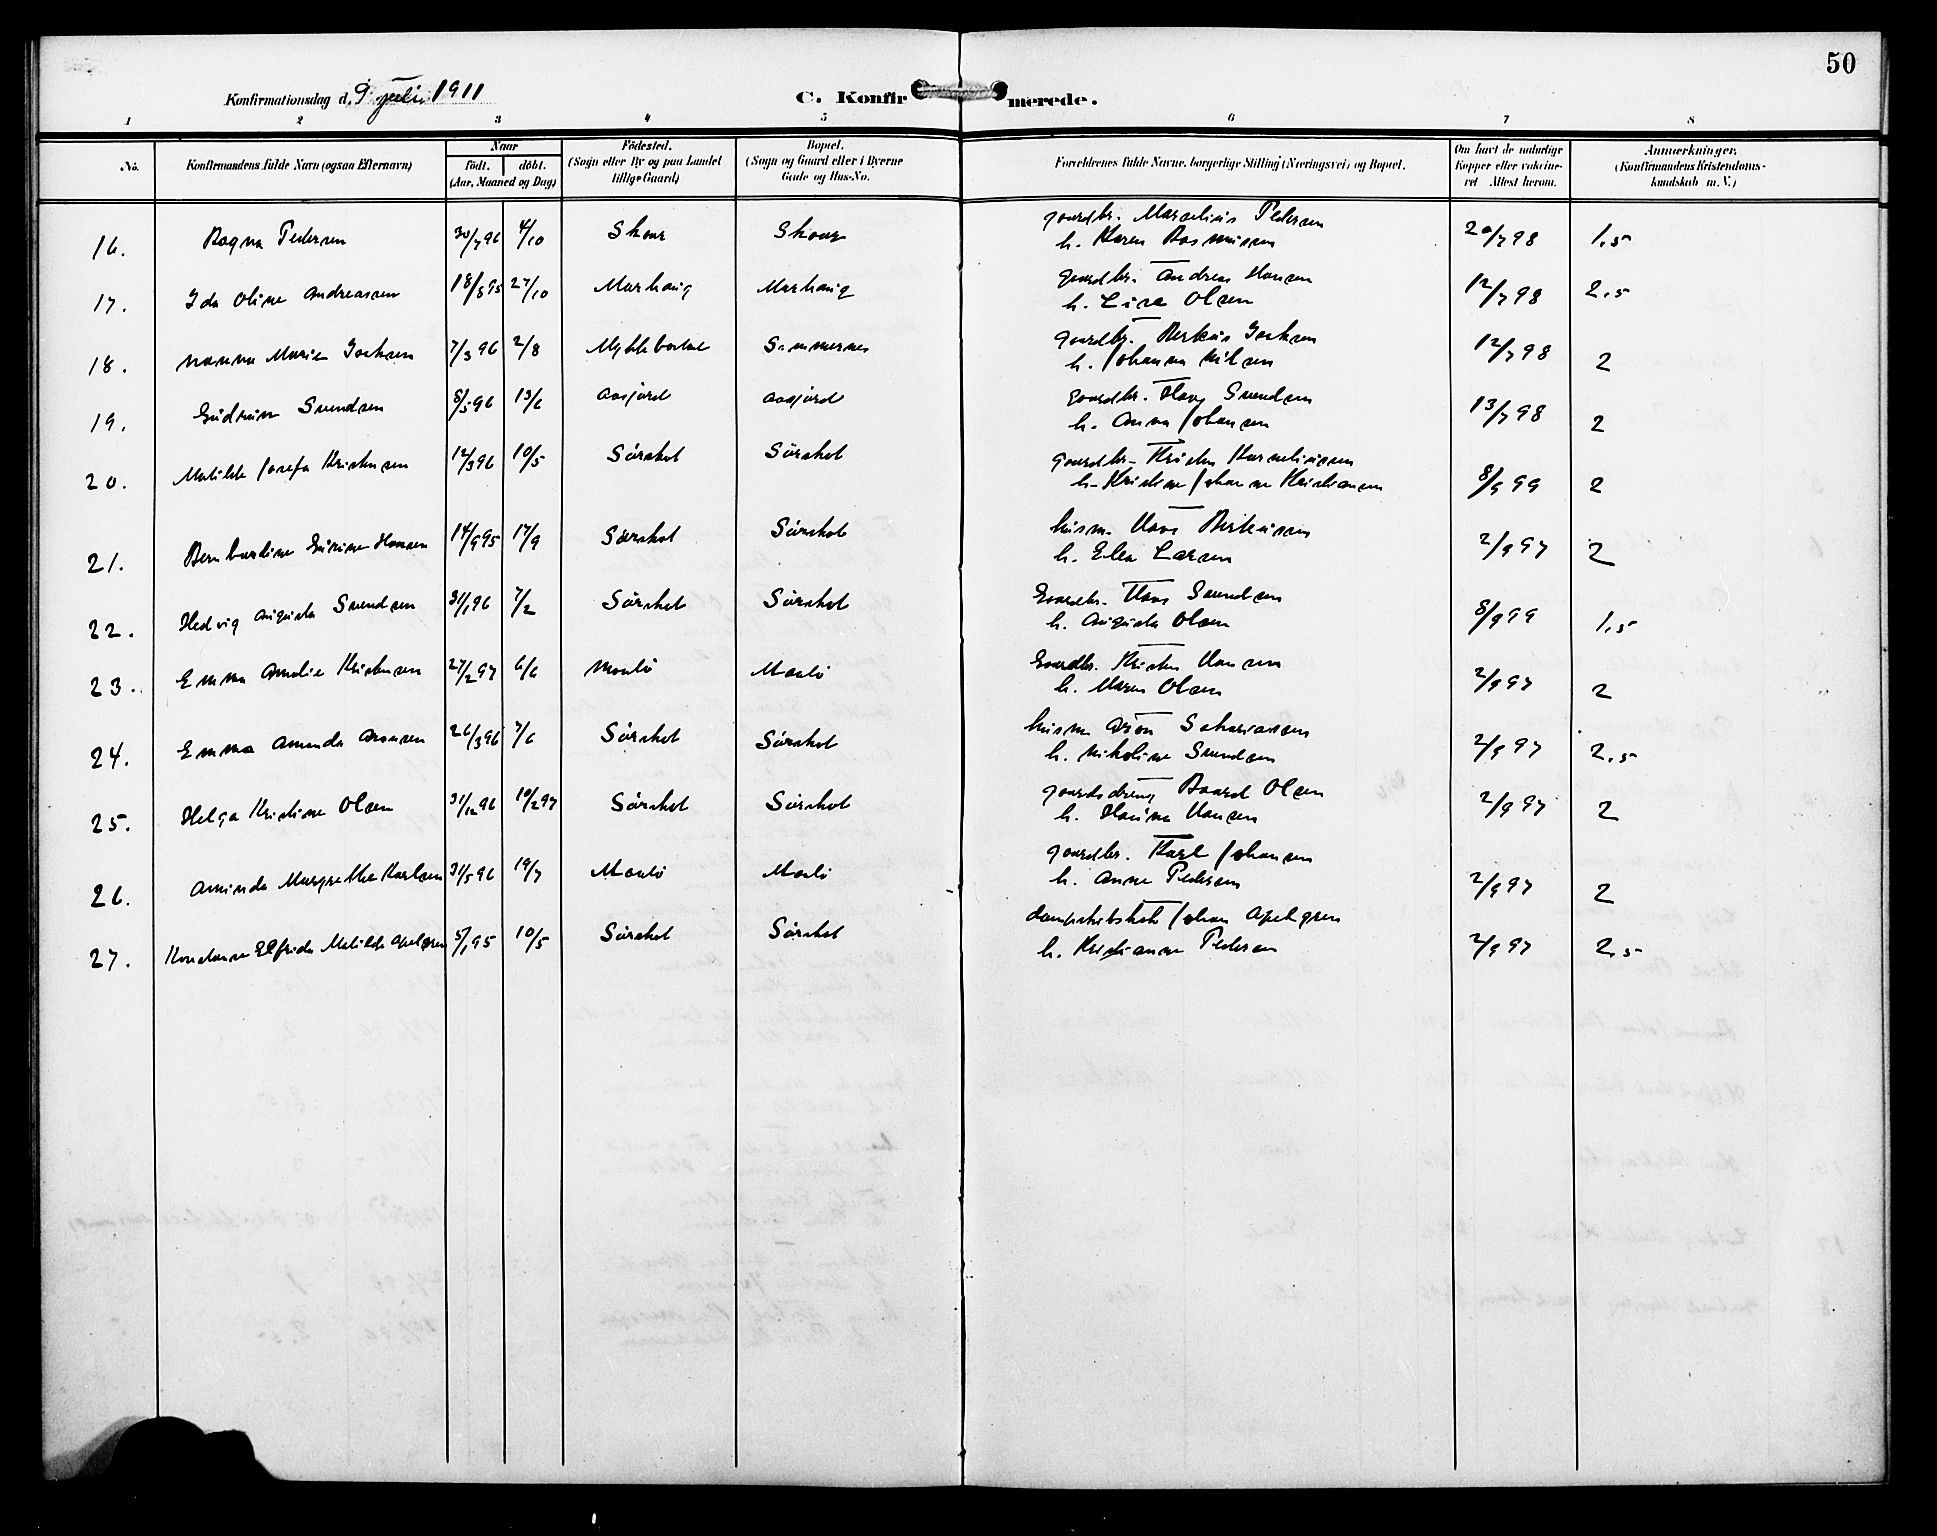 50
Konfirmationsdag d. 9 juli 1911
C. Konfirmerede.
1 2 3 4 5 6 7 8
No. Konfirmandens fulde Navn (ogsaa Efternavn) Naar født. døbt. (Aar, Maaned og Dag) Fødested. (Sogn eller By og paa Landet tillige Gaard) Bopæl. (Sogn og Gaard eller i Byerne Gade og Hus-No. Forældrenes fulde Navne, borgerlige Stilling (Næringsvei) og Bopæl. Om havt de naturlige Kopper eller vakcineret Attest herom. Anmærkninger. (Konfirmandens Kristendomskundskab m. V.)
16. Ragna Pedersen 30/7 96 4/10 Skaar Skaar gaardbr. Marselius Pedersen
h. Karen Rasmusen 20/7 98 1,5
17. Ida Oline Andreassen 18/8 95 27/10 Marhaug Marhaug gaardbr. Andreas Hansen
h. Lisa Olsen 12/7 98 2,5
18. Nanna Marie 7/3 96 2/8 Myklebostad gaardbr.
h. Johanna Nilsen 12/7 98 2
19. Gudrun Svendsen 8/5 96 13/6 Aasjord Aasjord Gaardbr. Svendsen
h. Anna Johansen 13/7 98 2
20. Matilde Josefa Kristensen 12/3 96 10/5 Sørskot Sørskot gaardbr. Kristen Korneliussen
h. Kristine Johanne Kristiansen 8/9 99 2
21. Bernhardine Hansen 14/9 95 17/9 Sørskot Sørskot husm. Hans
h. Elen Larsen 2/9 97 2
22. Hedvig Augusta Svendsen 31/1 96 7/2 Sørskot Sørskot Gaardbr. Hans Svendsen
h. Augusta Olsen 8/9 99 1,5
23. Emma Amalie Kristensen 27/2 97 6/6 Maalø Maalø Gaardbr. Kristen Hansen
h. Maren Olsen 2/9 97 2
24. Emma Amanda Aronsen 26/3 96 7/6 Sørskot Sørskot husm Aron Sakariassen
h. Nikoline Svendsen 2/9 97 2,5
25. Helga Kristine Olsen 31/12 96 10/2 97 Sørskot Sørskot gaardsdreng Baard Olsen
h. Hansen 2/9 97 2
26. Aminda Margrethe Karlsen 31/5 96 19/7 Maalø Maalø gaardbr. Karl Johansen
h. Anne Pedersen 2/9 97 2
27. Konstanse Elfrida Matilde Apelgren 5/1 95 10/5 Sørskot Sørskot Johan Apelgren
h. Kristianne Pedersen 2/9 97 2,5